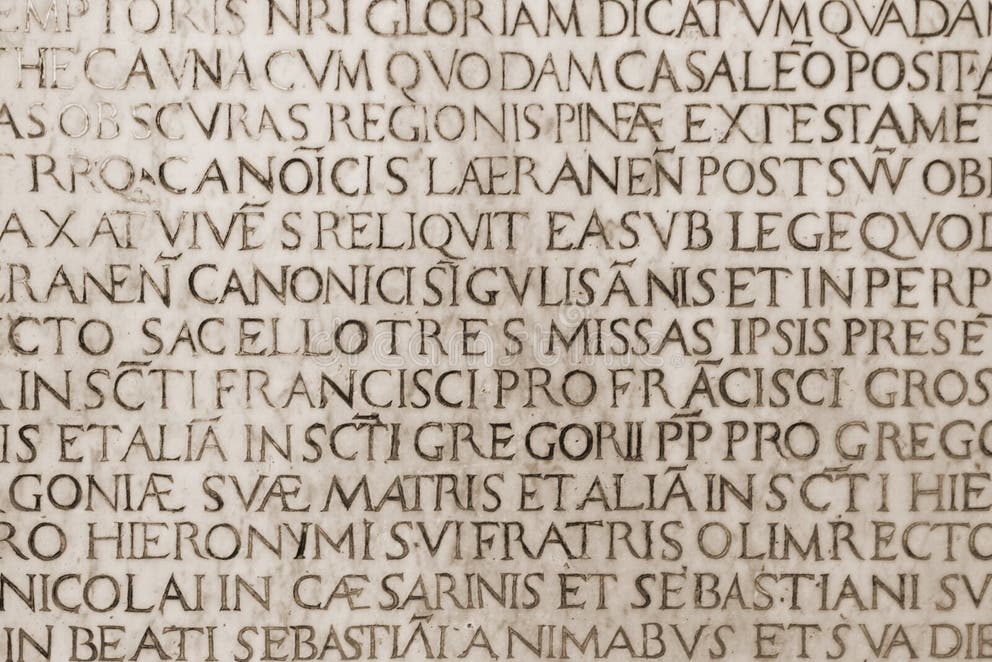 EMPTORIS NRI GLORIAM DICATVM QVADAM
HEC AVNA CVM QVODAM CASALEÕ POSIT A
AS OBSCVRAS REGIONIS PINEÆ EX TESTAME
RRQ CANOĨCIS LAERANEÑ POST SVV̄ OBI
AXAT VIVẼS RELIQVIT EA SVB LEGE QVOD
ERANEÑ CANONICI SĨGVLIS ÃNIS ET IN PERP
CTO SACELLO TRES MISSAS IPSIS PRESẼ
IN SC̃TI FRANCISCI PRO FRÃCISCI GROS
IS ET ALIÃ IN SC̃TI GREGORII PP̃ PRO GREGO
GONIÆ SVÆ MATRIS ET ALIÃ IN SC̃TI HIE
RO HIERONYMI SVI FRATRIS OLIM RECTO
NICOLAI IN CÆSARINIS ET SEBASTIANI SV
IN BEATI SEBASTIÃI ANIMABVS ET SVA DIE